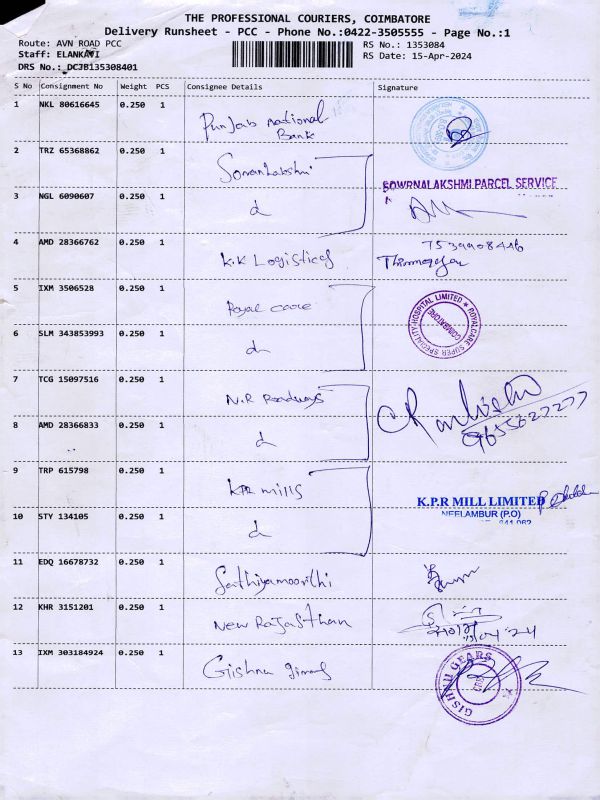 THE PROFESSIONAL COURIERS, COIMBATORE
Delivery Runsheet - PCC - Phone No.:0422-3505555 - Page No.:1
Route: AVN ROAD PCC
RS No.: 1353084
Staff: ELANKAVI
RS Date: 15-Apr-2024
DRS No.: DCJB135308401
S No Consignment No Weight PCS Consignee Details Signature
1 NKL 80616645 0.250 1 Punjab national
Bank
2 TRZ 65368862 0.250 1 Sornalakshmi
SOWRNALAKSHMI PARCEL SERVICE
3 NGL 6090607 0.250 1 d
4 AMD 28366762 0.250 1 K.K Logistics 7539908446
5 IXM 3506528 0.250 1 Royal care
ROYALCARE SUPER SPECIALITY HOSPITAL LIMITED
COIMBATORE
6 SLM 343853993 0.250 1 d
7 TCG 15097516 0.250 1 N.R Roadways
8 AMD 28366833 0.250 1 d 9655627277
9 TRP 615798 0.250 1 KPR mills
K.P.R MILL LIMITED
NEELAMBUR (P.O)
10 STY 134105 0.250 1 d
11 EDQ 16678732 0.250 1 Sathiyamoorthi
12 KHR 3151201 0.250 1 New Rajasthan
13 IXM 303184924 0.250 1 Gishnu
GISHNU GEARS